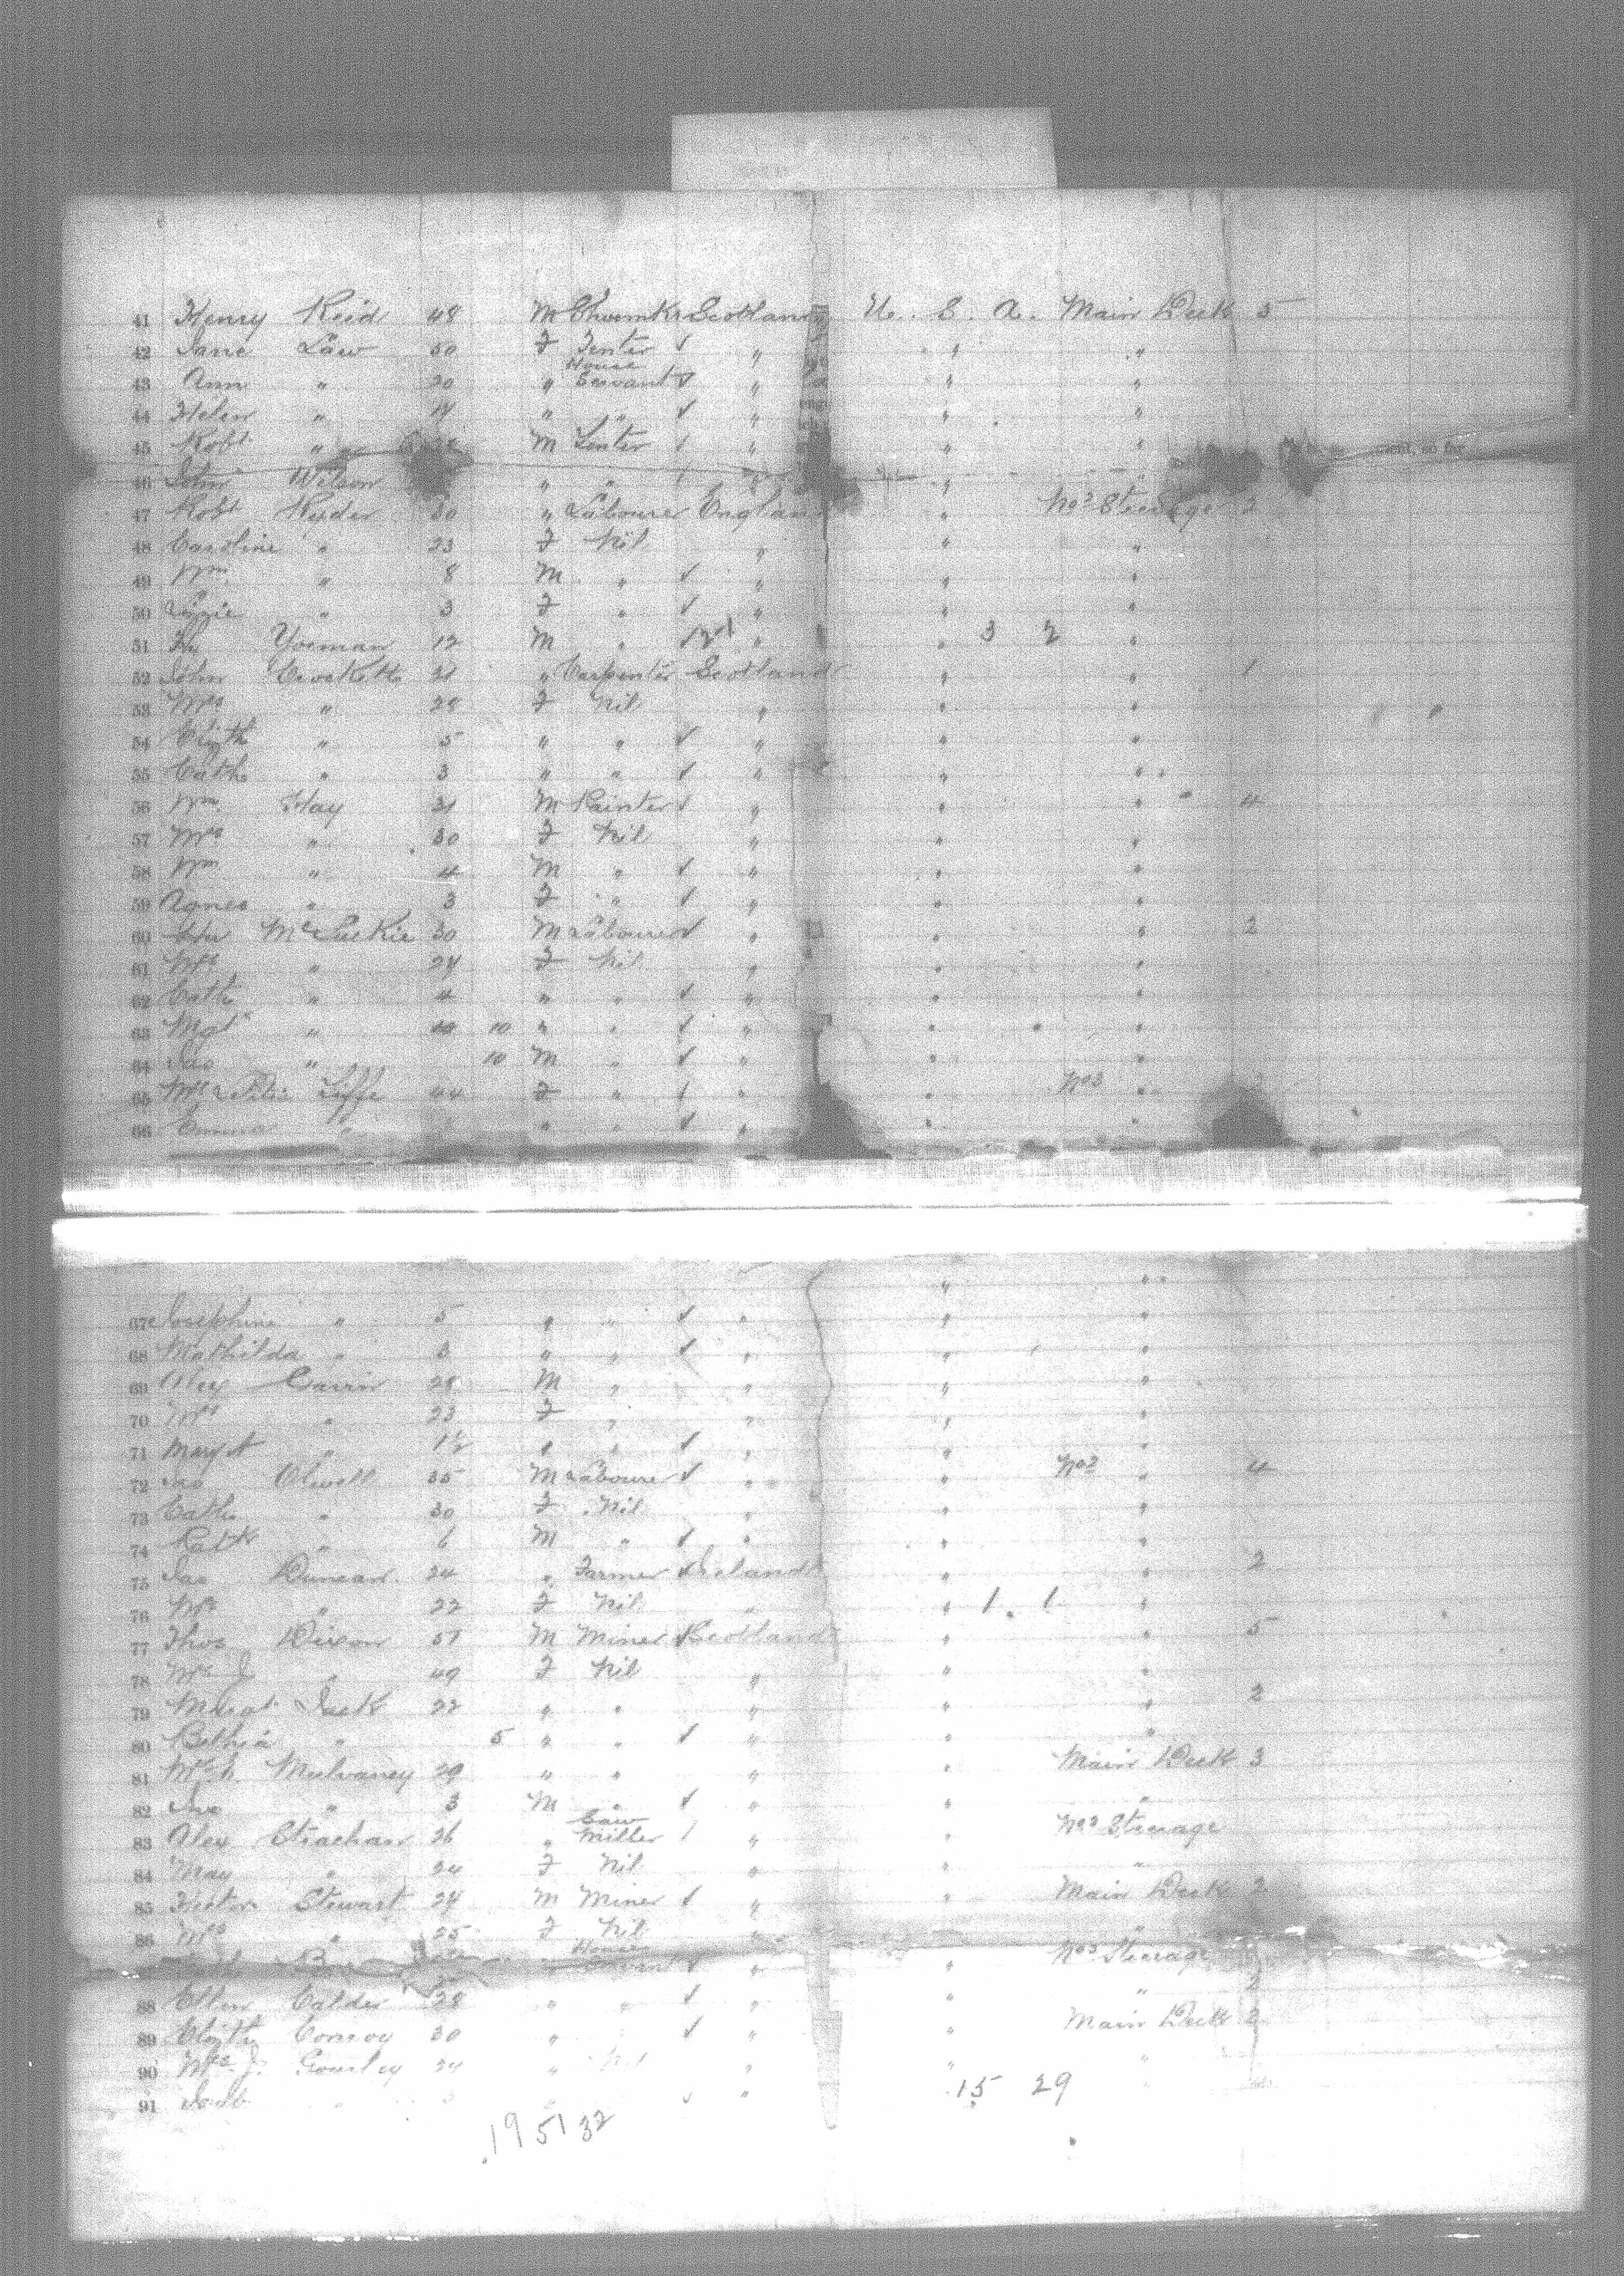 41 Henry Reid 48 M Shoemkr Scotland U. S. A. Main Deck 5
42 Jane Law 50 F Tenter ✓ " " "
43 Ann " 20 " House Servant ✓ " " "
44 Helen " 17 " " ✓ " " "
45 Robt " M Tenter ✓ " " "
46 John Wilson " " ✓ " "
47 Robt Ryder 30 " Labourer England " No 2 Steerage 2
48 Caroline " 23 F Nil " " "
49 Wm " 8 M " ✓ " " "
50 Lizzie " 3 F " ✓ " " "
51 Yoeman 12 M " ✓ " " 3 2 "
52 John Crockett 31 " Carpenter Scotland " " 1
53 Mrs " 28 F Nil " " "
54 Elizth " 5 " " ✓ " " "
55 Cath " 3 " " ✓ " " "
56 Wm Hay 31 M Painter ✓ " " " 4
57 Mrs " 30 F Nil " " "
58 Wm " 4 M " ✓ " " "
59 Agnes " 3 F " ✓ " " "
60 McLuckie 30 M Labourer ✓ " " " 2
61 Mrs " 24 F Nil " " "
62 Cath " 4 " " ✓ " " "
63 Mgt " 10 " " ✓ " " "
64 Jas " 10 M " ✓ " " "
65 Mrs Liffe 44 F " ✓ " " No 3 "
66 Emma " " " ✓ " " "
" "
67 Josephine " 5 " " ✓ " " "
68 Mathilda " 3 " " ✓ " " "
69 Alex Gavin 28 M " " " "
70 Mrs " 23 F " " " "
71 Margt " 1½ " " ✓ " "
72 Jas Olwell 35 M Labourer ✓ " " No 2 " 4
73 Cath " 30 F Nil " " "
74 Patk " 6 M " ✓ " " "
75 Jas Duncan 24 " Farmer ✓ Ireland " " 2
76 Mrs " 22 F Nil " " 1 1 "
77 Thos Dixon 51 M Miner ✓ Scotland " " 5
78 Mrs J " 49 F Nil " " "
79 Margt Jack 22 " " " " " 2
80 Bethia " 5 " " ✓ " " "
81 Mrs Mulvaney 29 " " " " Main Deck 3
82 Jas " 3 M " ✓ " " "
83 Alex Strachan 26 " Saw Miller ✓ " " No 2 Steerage
84 May " 24 F Nil " " "
85 Hector Stewart 24 M Miner ✓ " " Main Deck 2
86 Mrs " 25 F Nil " " "
House ✓ " " No 3 Steerage
88 Ellen Calder 28 " " ✓ " " " 2
89 Elizth Conroy 30 " ✓ " " Main Deck 2
90 Mrs J. Gourley 24 " Nil " " "
91 " 3 " ✓ " 15 29
19 51 32